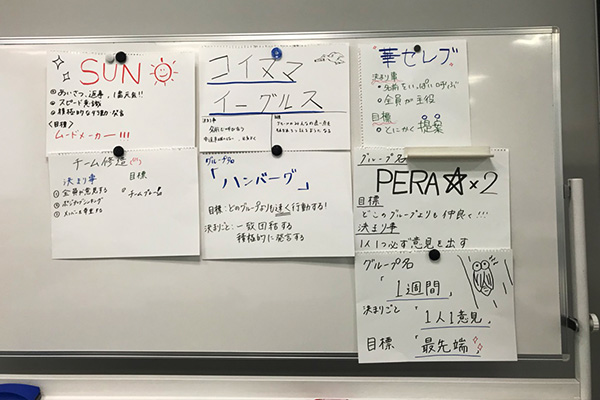 SUN
① あいさつ、返事、は元気!!
② スピード意識
③ 積極的な行動・発言
〈目標〉
ムードメーカー!!!
コイヌマ
イーグルス
"華セレブ"
決まり事
・名前をいっぱい
・全員が主役
目標
・とにかく提案
チーム修造
決まり事
① 全員が意見する
② ポジティブシンキング
③
目標
グループ名
「ハンバーグ」
目標:どのグループよりも速く行動する!
決まりごと:一致団結する
積極的に発言する
グループ名
PERA☆×2
目標
どこのグループよりも仲良く!!!
決まり事
1人1つ必ず意見を出す
グループ名
「1週間」
決まりごと
「1人1意見」
目標
「最先端」